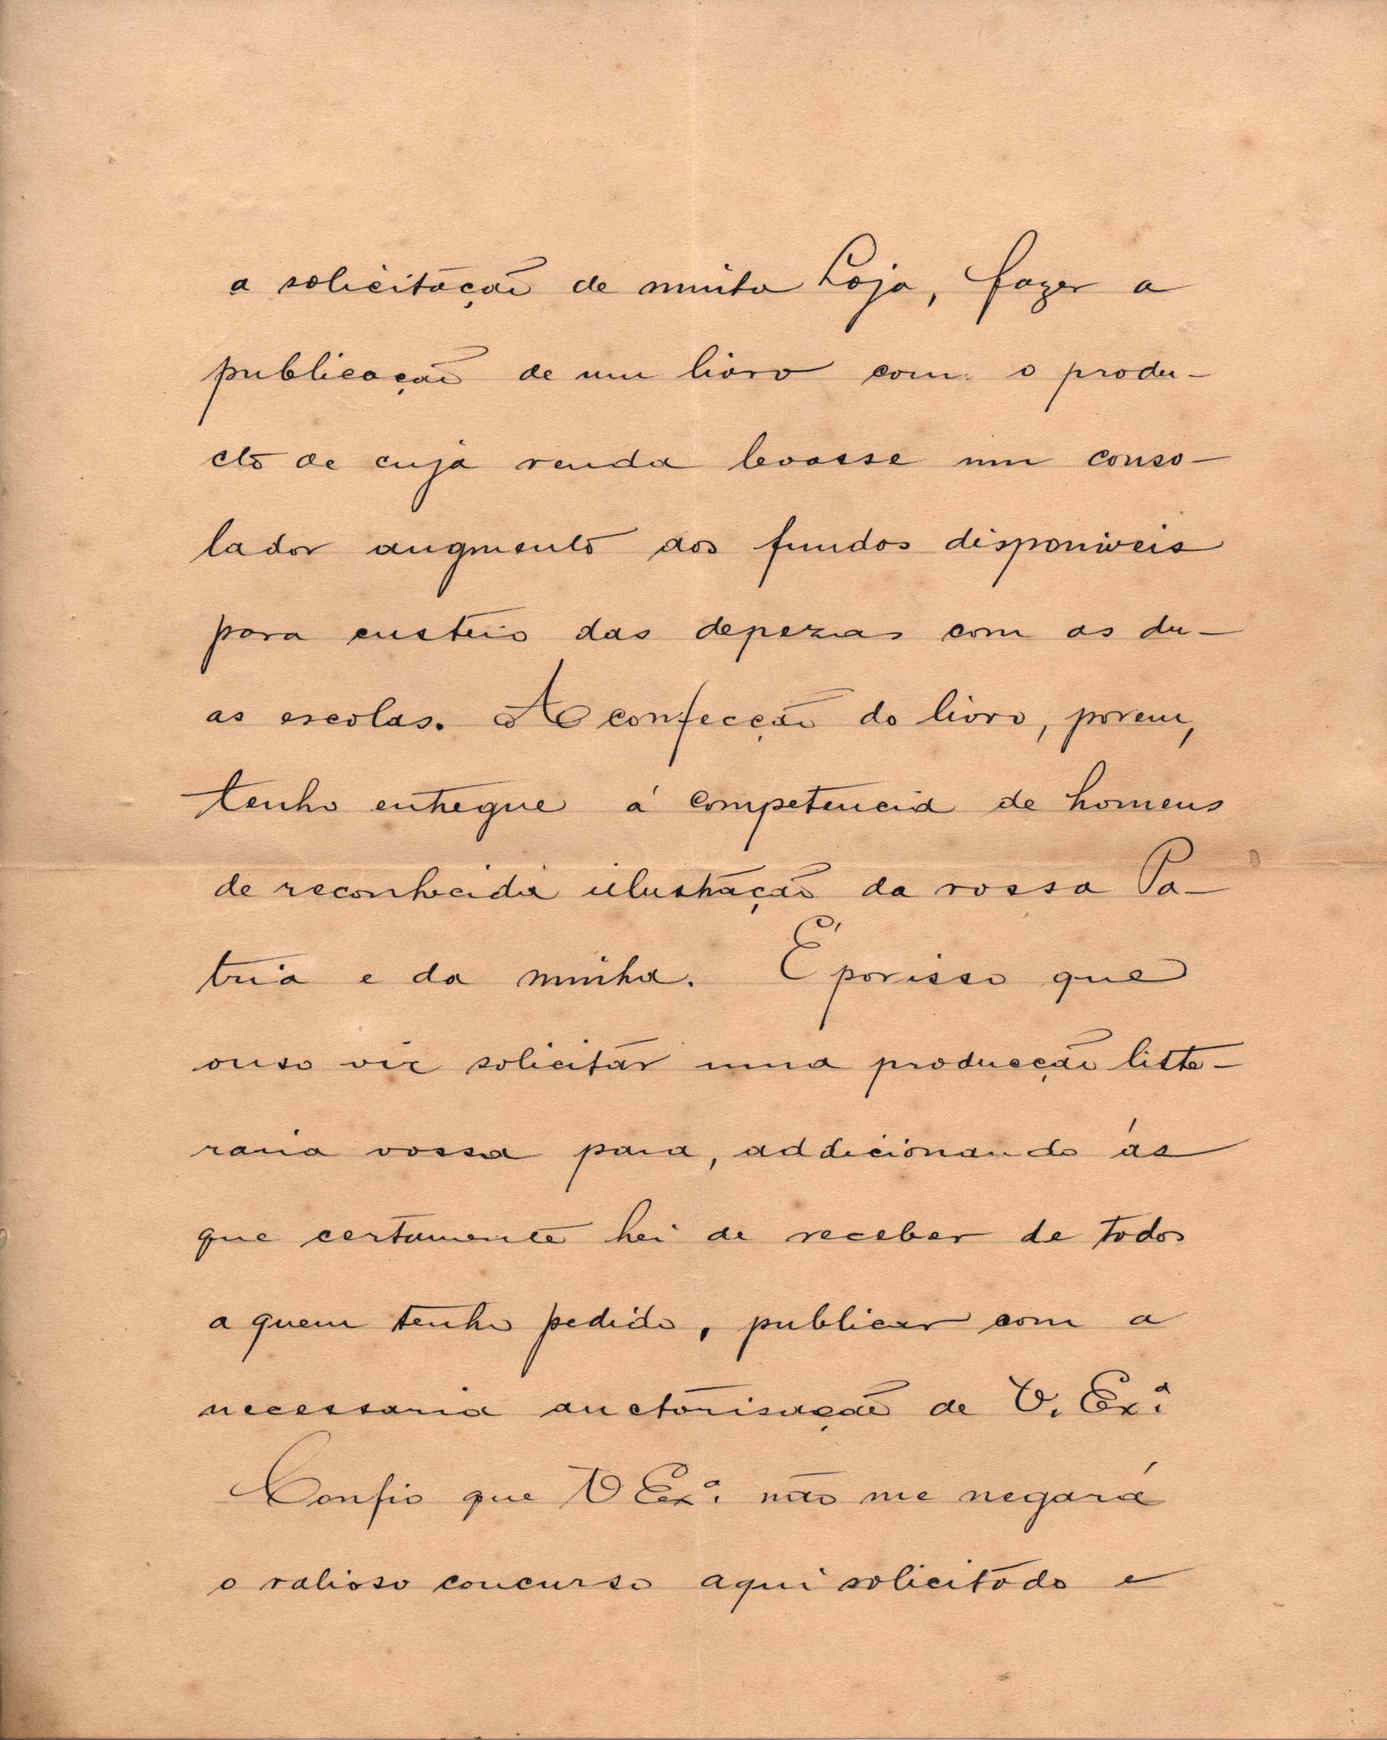 a solicitação de minha Loja, fazer a
publicação de um livro com o produ-
cto de cuja renda levasse um conso-
lador augmento aos fundos disponiveis
para custeio das depezas com as du-
as escolas. A confecção do livro, porem,
tenho entregue á competencia de homens
de reconhecida ilustração da vossa Pa-
tria e da minha. É porisso que
ouso vir solicitar uma producção litte-
raria vossa para, addicionando ás
que certamente hei de receber de todos
a quem tenho pedido, publicar com a
necessaria auctorisação de V. Ex.ª
Confio que V Ex.ª não me negará
o valioso concurso aqui solicitado e